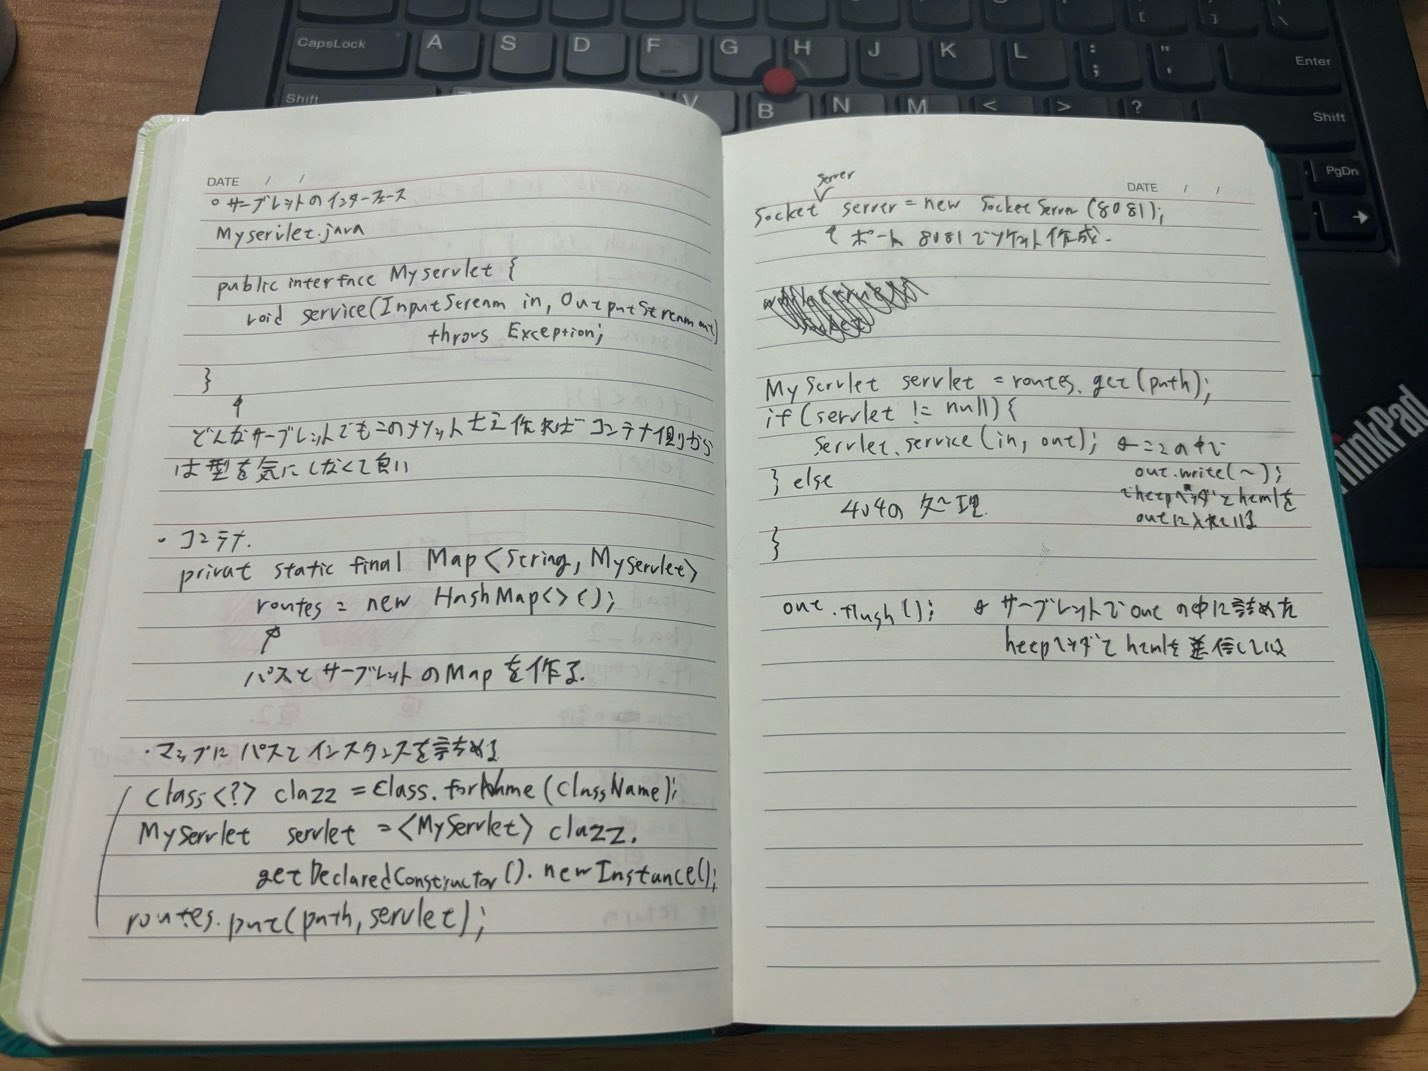 CapsLock
A
S
D
F
G
H
J
K
L
;
:
"
'
Enter
Shift
V
B
N
M
<
>
?
Shift
PgDn
ThinkPad
DATE / /
・サーブレットのインターフェース
Myservlet.java
public interface Myservlet {
void service(InputSeream in, OutputStream out)
throws Exception;
}
↑
どんなサーブレットでもこのメソットさえ作れば コンテナ側から
は型を気にしなくて良い
・コンテナ.
privat static final Map<String, MyServlet>
routes = new HashMap<>();
↑
パスとサーブレットのMapを作る.
・マップに パスと インスタンスを詰める
Class<?> clazz = Class.forName(className);
MyServlet servlet = <MyServlet> clazz.
getDeclaredConstructor().newInstance();
routes.put(path, servlet);
DATE / /
Server
Socket server = new SocketServer(8081);
↑ ポート 8081でソケット作成.
MyServlet servlet = routes.get(path);
if(servlet != null){
Servlet.service(in, out); ←この中で
out.write(~);
でheepヘッダとhemlを
outに入れている
} else
404の処理
}
out.flush(); ← サーブレットでoutの中に詰めた
heepヘッダとhemlを送信している